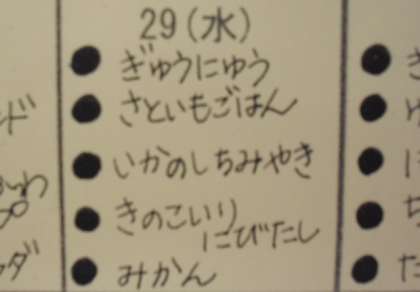 29(水)
● ぎゅうにゅう
● さといもごはん
● いかのしちみやき
● きのこいり
にびたし
● みかん